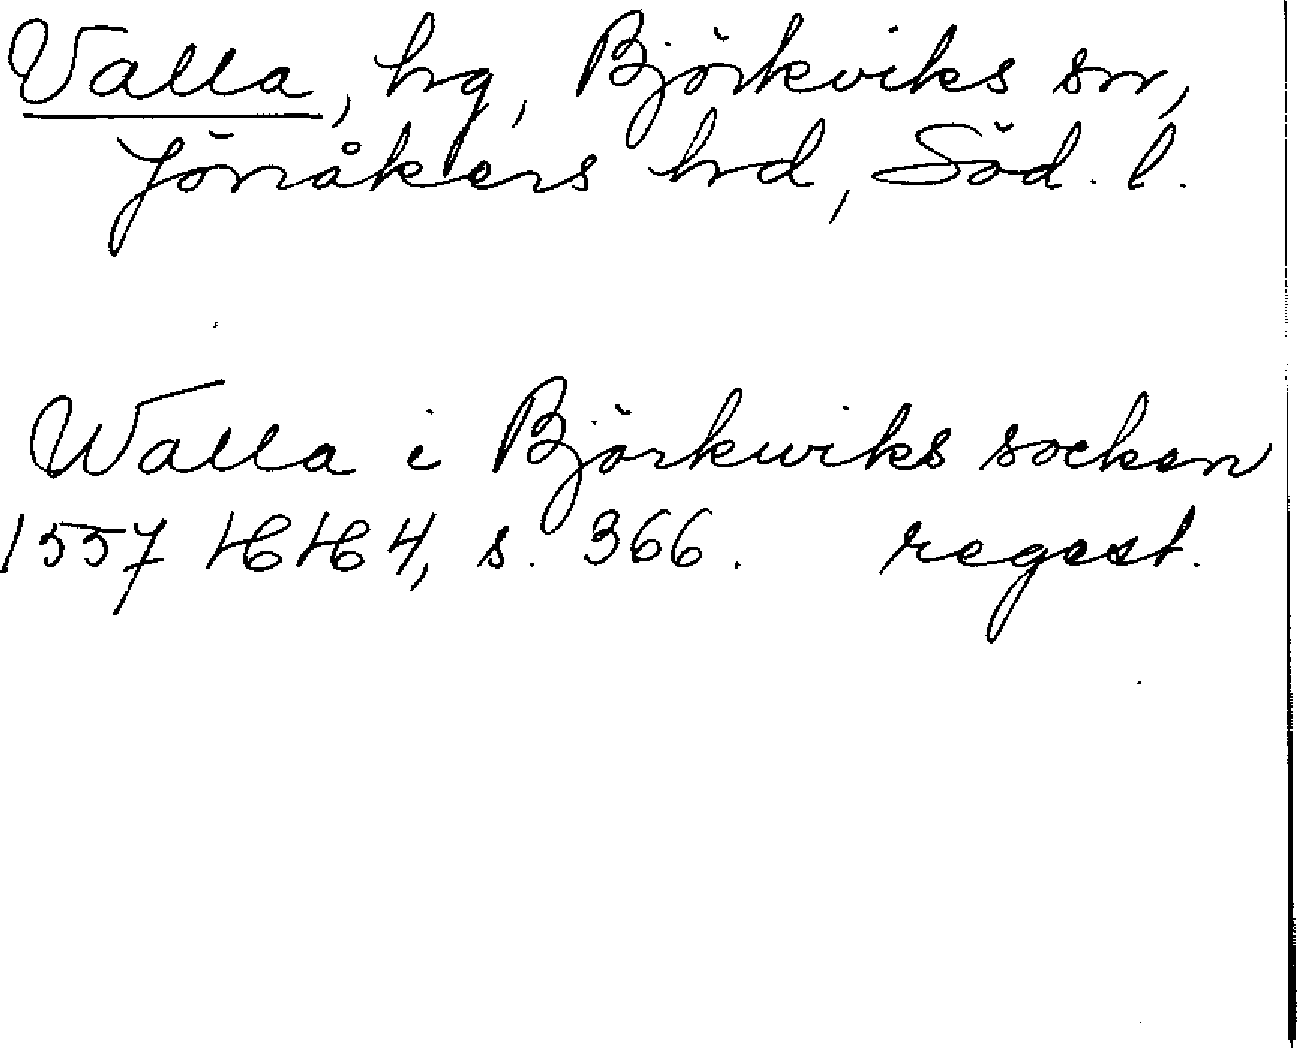 Valla, hg, Björkviks sn,
Jönåkers hd, Söd. l.
Walla i Björkwiks socken
1557 HH 4, s. 366. regest.